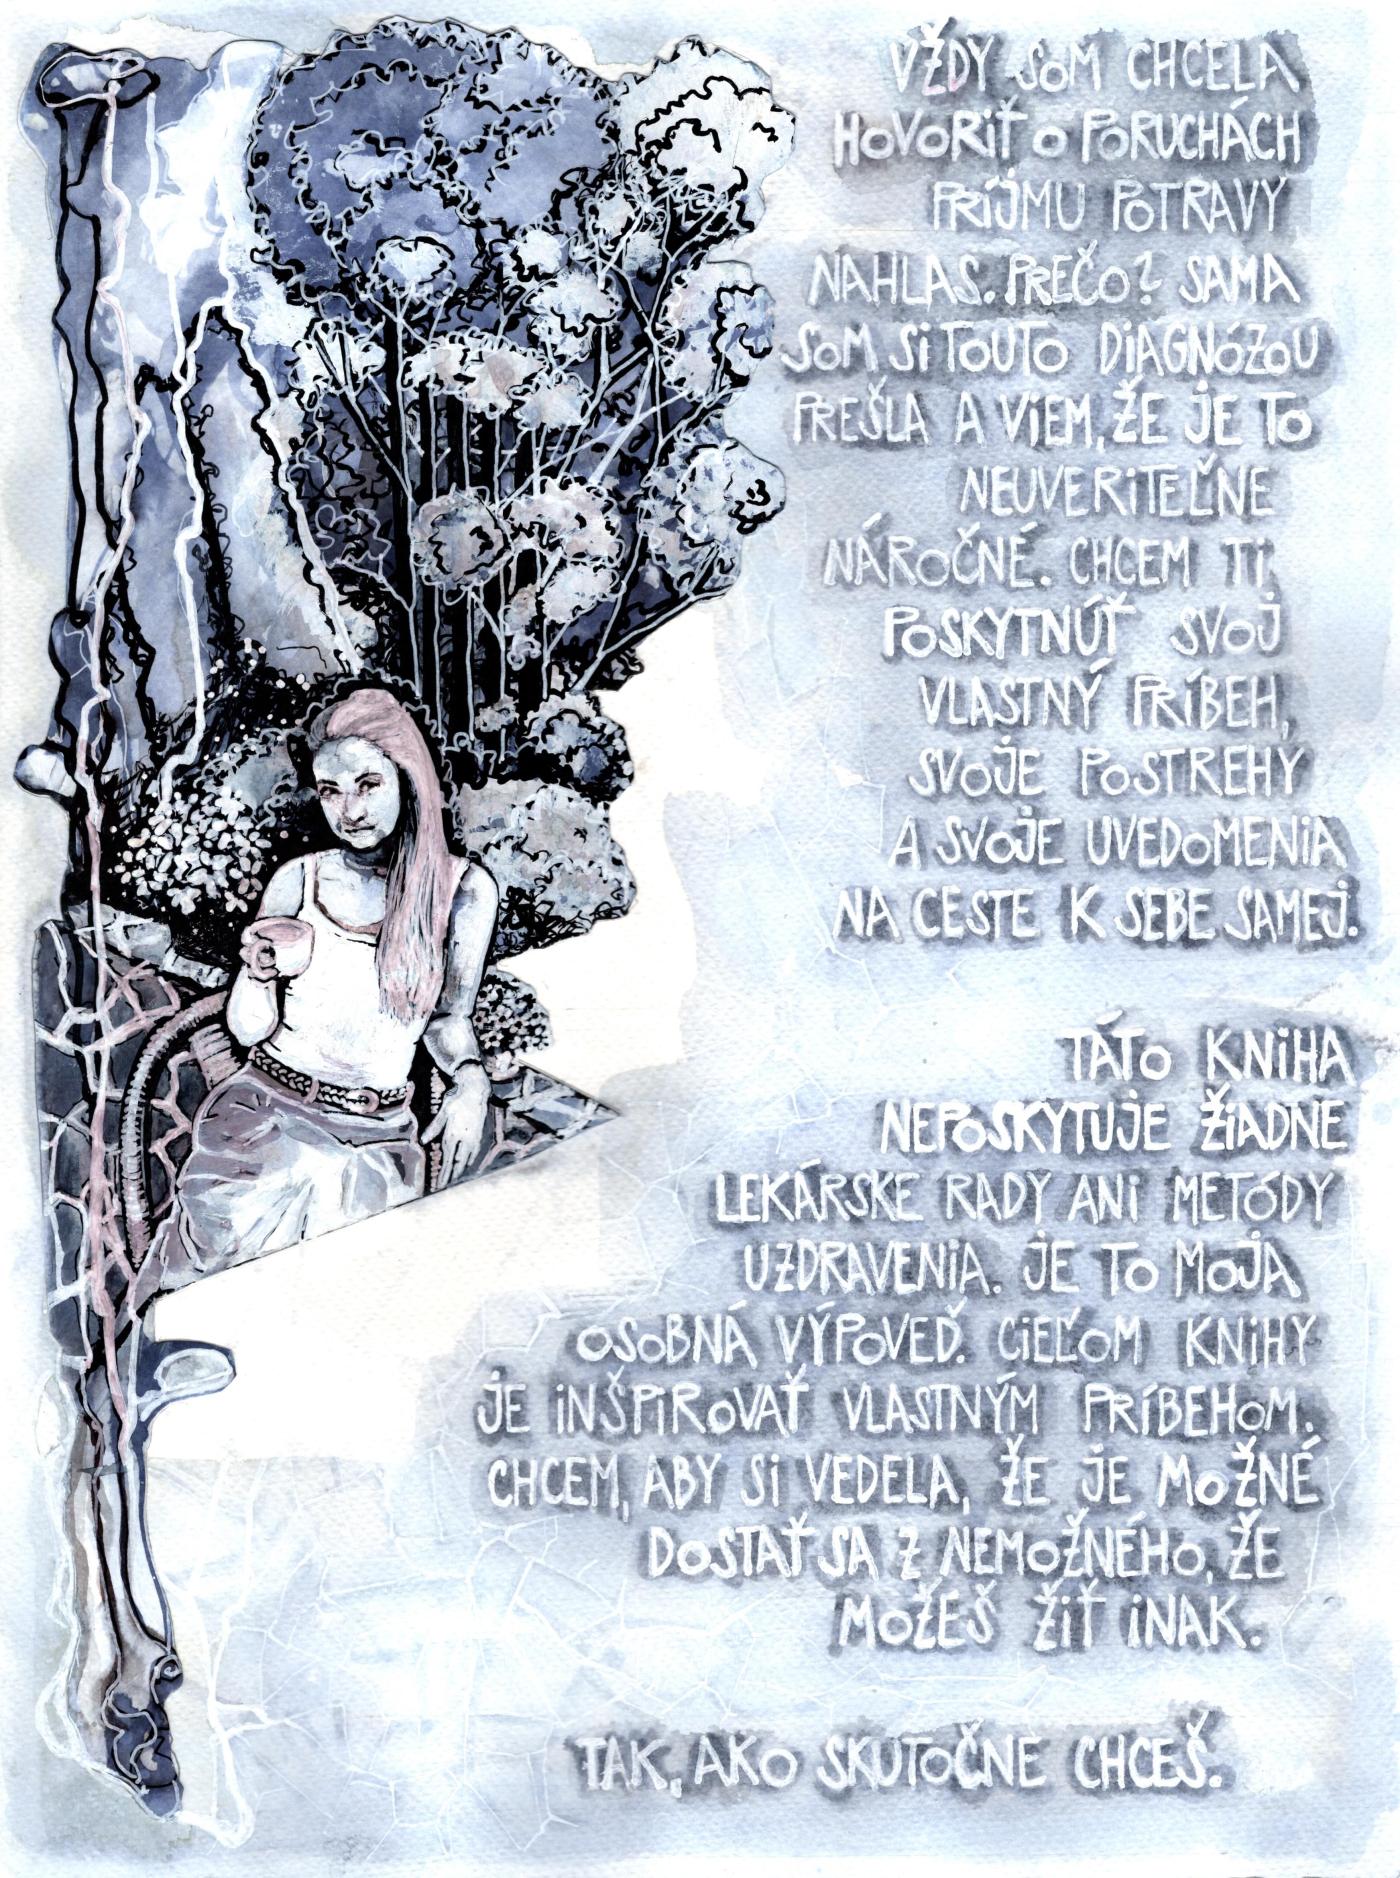 VŽDY SOM CHCELA
HOVORIŤ O PORUCHÁCH
PRÍJMU POTRAVY
NAHLAS. PREČO? SAMA
SOM SI TOUTO DIAGNÓZOU
PREŠLA A VIEM, ŽE JE TO
NEUVERITEĽNE
NÁROČNÉ. CHCEM TI
POSKYTNÚŤ SVOJ
VLASTNÝ PRÍBEH,
SVOJE POSTREHY
A SVOJE UVEDOMENIA
NA CESTE K SEBE SAMEJ.
TÁTO KNIHA
NEPOSKYTUJE ŽIADNE
LEKÁRSKE RADY ANI METÓDY
UZDRAVENIA. JE TO MOJA
OSOBNÁ VÝPOVEĎ. CIEĽOM KNIHY
JE INŠPIROVAŤ VLASTNÝM PRÍBEHOM.
CHCEM, ABY SI VEDELA, ŽE JE MOŽNÉ
DOSTAŤ SA Z NEMOŽNÉHO, ŽE
MOŽEŠ ŽIŤ INAK.
TAK, AKO SKUTOČNE CHCEŠ.